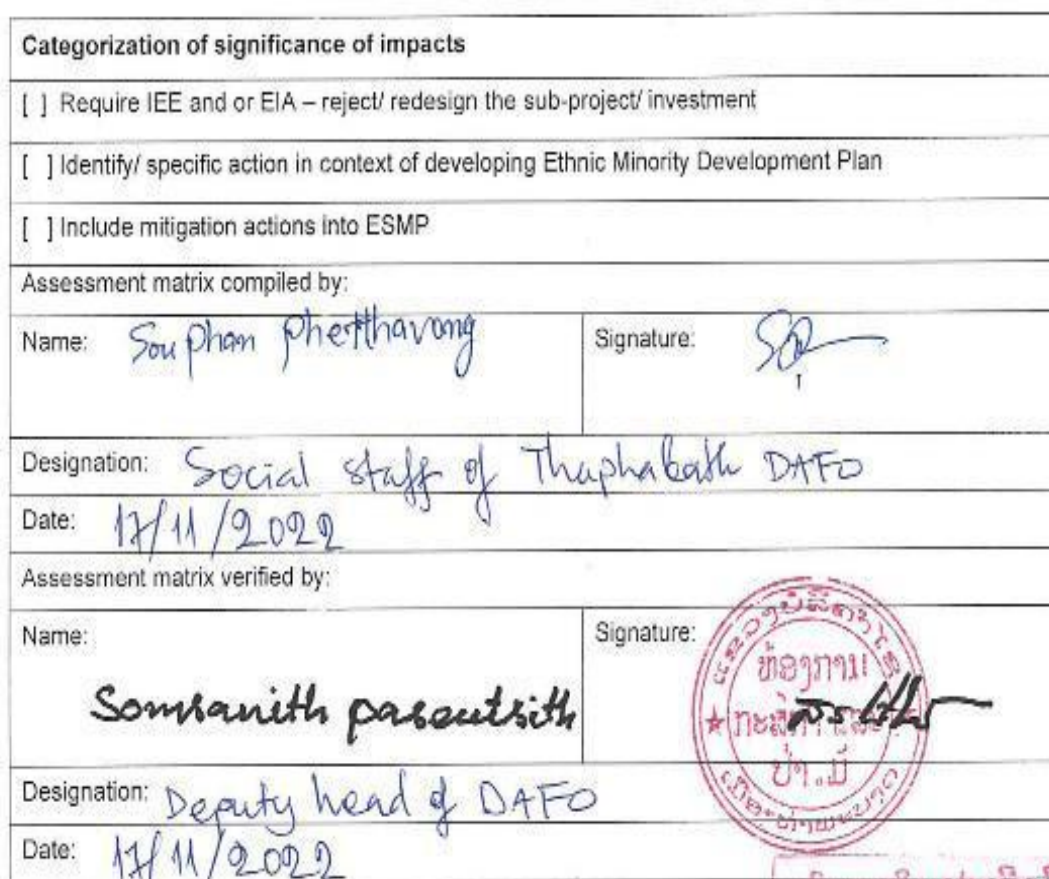 Categorization of significance of impacts
[ ] Require IEE and or EIA – reject/ redesign the sub-project/ investment
[ ] Identify/ specific action in context of developing Ethnic Minority Development Plan
[ ] Include mitigation actions into ESMP
Assessment matrix compiled by:
Name: Souphan phetthavong Signature:
Designation: Social staff of Thaphabath DAFO
Date: 17/11/2022
Assessment matrix verified by:
Name: Somsanith paseutsith Signature:
ແຂວງບໍລິຄຳໄຊ
ຫ້ອງການ
ປ່າ.ມ້
Designation: Deputy head of DAFO
Date: 17/11/2022